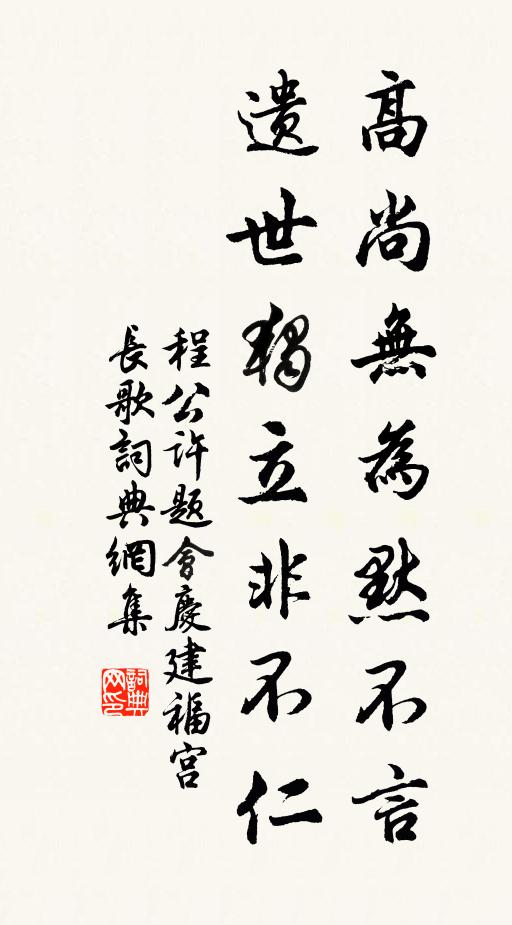 高尚無為默不言
遺世獨立非不仁
程公許題會慶建福宮
長歌詞典網集
詞典网印